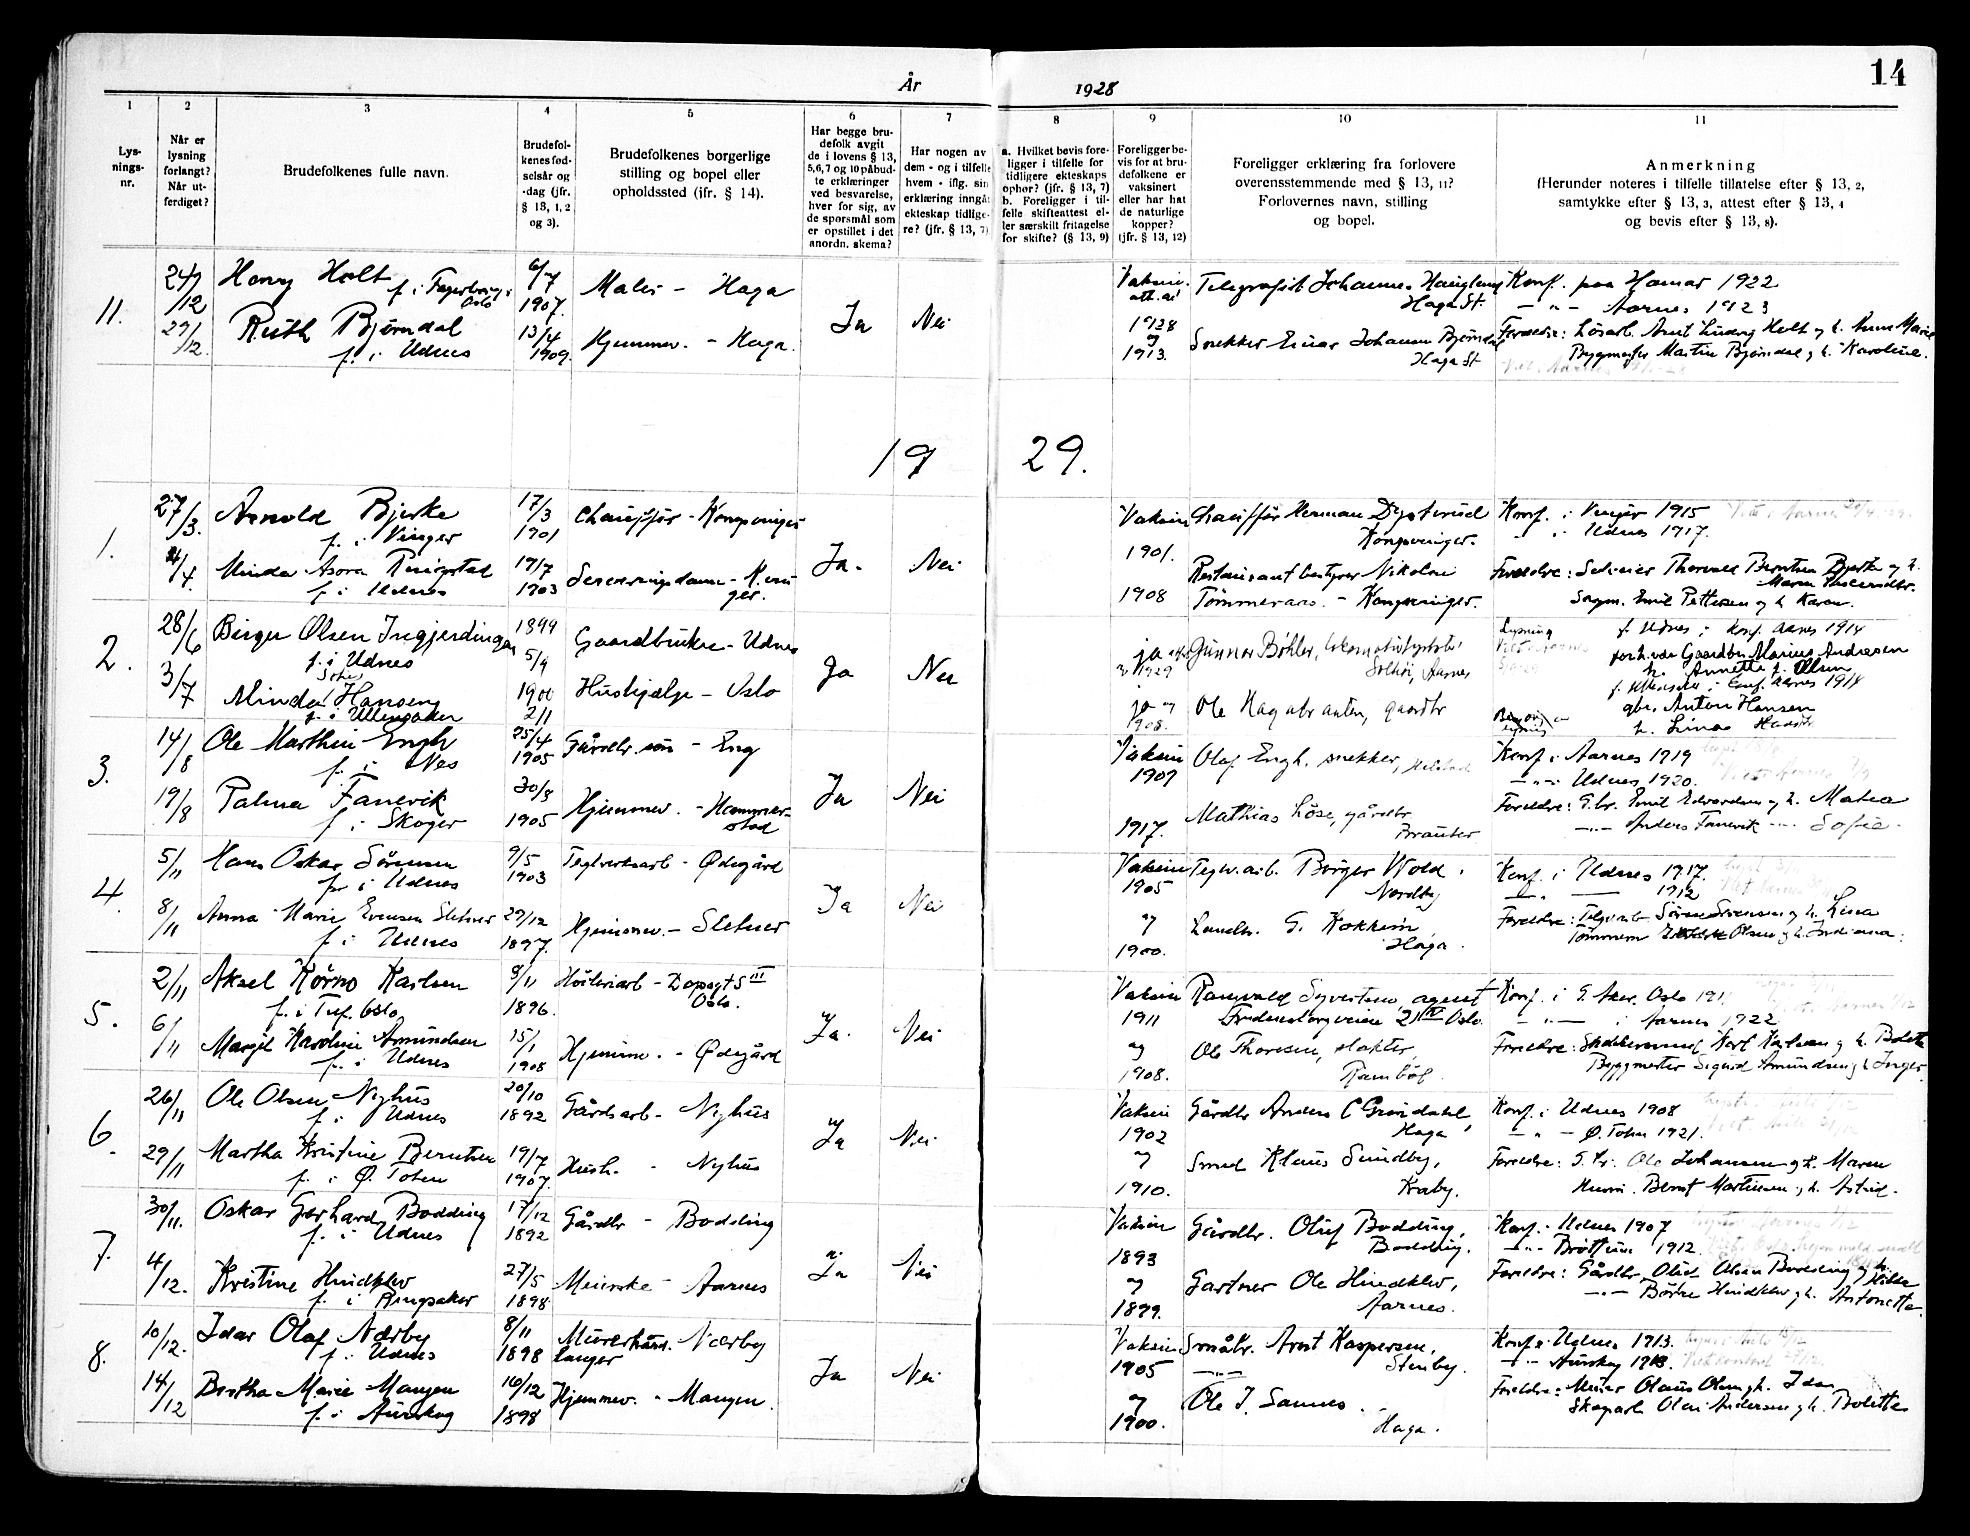 14
År 1928
1 2 3 4 5 6 7 8 9 10 11
Lys-
nings-
nr.
Når er
lysning
forlangt?
Når ut-
ferdiget?
Brudefolkenes fulle navn.
Brudefol-
kenes fød-
selsår og
-dag (jfr.
§ 13, 1, 2
og 3).
Brudefolkenes borgerlige
stilling og bopel eller
opholdssted (jfr. § 14).
Har begge bru-
defolk avgit
de i lovens § 13,
5,6,7 og 10 påbud-
te erklæringer
ved besvarelse,
hver for sig, av
de spørsmål som
er opstillet i det
anordn. skema?
Har nogen av
dem - og i tilfelle
hvem - iflg. sin
erklæring inngåt
ekteskap tidlige-
re? (jfr. § 13, 7)
a. Hvilket bevis fore-
ligger i tilfelle for
tidligere ekteskaps
ophør? (jfr. § 13, 7)
b. Foreligger i til-
felle skifteattest el-
ler særskilt fritagelse
for skifte? (§ 13, 9)
Foreligger be-
vis for at bru-
defolkene er
vaksinert
eller har hat
de naturlige
kopper?
(jfr. § 13, 12)
Foreligger erklæring fra forlovere
overensstemmende med § 13, 11?
Forlovernes navn, stilling
og bopel.
Anmerkning
(Herunder noteres i tilfelle tillatelse efter § 13, 2,
samtykke efter § 13, 3, attest efter § 13, 4
og bevis efter § 13, 8).
11.
24/12
29/12.
Henry Holt f. i Fagerborg,
Oslo
Ruth Bjørndal
f. i Udnes
6/7
1907.
13/4
1909.
Maler - Haga
Hjemmev. - Haga.
Ja
Nei
Vaksin.
att. av
1928
og
1913.
Telegrafist Johannes Hauglund
Haga St.
Snekker Einar Johannes Bjørndal
Haga St
Konf. paa Hamar 1922
— „ — Aarnes 1923
Foreldre: Løsarb. Arnt Ludvig Holt og h. Anna Marie
Bygmester Martin Bjørndal og h. Karoline.
1929.
1.
27/3.
4/4
Arnold Bjerke
f. i Vinger
Minda Asora Ringstad
f. i Udnes
17/3
1901
19/7
1903
Chauffør - Kongsvinger
Serveringsdame - K.vin
ger.
Ja.
Nei
Vaksin
1901.
1908
Chauffør Herman Dysterud
Kongsvinger.
Restaurant bestyrer Nikolai
Tømmeraas. - Kongsvinger.
Konf. i Vinger 1915
„ i Udnes 1917.
Foreldre: Selveier Thorvald Berntsen Bjerke og h.
Maren Andersdtr.
Sagm. Emil Pettersen og h. Karen.
2.
28/6
3/7
Birger Olsen Ingjerdingen
f. i Udnes
Minda Hansen
f. i Ullensaker
1899
5/9
1900
2/1
Gaardbruker - Udnes
Hushjælp - Oslo
Ja
Nei
ja
1929
ja og
1908.
Gunnar Bøhler,
Solhøi, Aarnes
Ole Hagabraaten, gaardbr
Lysning
f. Udnes; konf. Aarnes 1914
Gaardbr. Marius Andresen
h. Annette f. Olsen
f. Ullensaker; konf. Aarnes 1914
gbr. Anton Hansen
h. Lina
3.
14/8
19/8
Ole Marthin Engh
f. i Nes
Palma Fanevik
f. i Skoger
25/4
1905
30/3
1905
Gårdbr. søn - Eng
Hjemmev. - Hammer-
stad
Ja
Nei
Vaksin
1907
1917.
Olaf Engh. snekker,
Mathias Løse, gårdbr
Konf. i Aarnes 1919
— „ — i Udnes 1920.
Foreldre: G.br. Emil Edvardsen og h. Matea
— „ — Anders Fanevik — „ — Sofie.
4.
5/11
8/11
Hans Oskar Sørensen
f. i Udnes
Anna Marie Evensen Sletner
f. i Udnes
9/5
1903
29/12
1897.
Teglverksarb - Ødegård
Hjemmev. - Sletner
Ja
Nei
Vaksin
1905
og
1900.
Teglv.arb. Birger Wold.
Nordby
Landbr. G. Kokkim
Haga.
Konf. i Udnes 1917.
— „ — 1912
Foreldre: Teglv.arb. Søren Sørensen og h. Lina
Tømmerm. Olsen og h. Indiana.
5.
2/11
6/11
Aksel Kørno Karlsen
f. i Tref. Oslo
Margit Karoline Amundsen
f. i Udnes
9/11
1896.
15/1
1908
Hjemmev. - Ødegård
Ja.
Nei
Vaksin
1911
og
1908.
Ragnvald Syvertsen, agent
Fredensborgveien 21 IV Oslo.
Ole Thoresen, slakter,
Konf. i G. Aker. Oslo 191
— „ — i Aarnes 1922
Foreldre: Karl Karlsen og h. Bolette
Byggmester Sigurd Amundsen og h. Inger.
6.
26/11
29/11
Ole Olsen Nyhus
f. i Udnes
Martha Kristine Berntsen
f. i Ø. Toten
20/10
1892
19/7
1907.
Gårdsarb - Nyhus
Hush. - Nyhus
Ja
Nei
Vaksin
1902
og
1910.
Gårdbr Anders C Grøndahl,
Haga
Smed Klaus Sundby,
Kraby.
Konf. i Udnes 1908
— „ — Ø. Toten 1921.
Foreldre: G.br. Ole Johansen og h. Maren
Husm. Bernt Martinsen og h. Astrid.
7.
30/11.
4/12.
Oskar Gerhard Bodding
f. i Udnes
Kristine Hindklev
f. i Ringsaker
17/12
1892
27/5
1898
Gårdbr - Bodding
Meierske - Aarnes
Ja
Nei
Vaksin
1893
og
1899.
Gårdbr. Oluf Bodding,
Bodding.
Gartner Ole Hindklev,
Aarnes.
Konf. i Udnes 1907
— „ — Brøttum 1912.
Foreldre: Gårdbr. Olsen Bodding og h. Hilda
— „ — Hindklev og h. Antonette
8.
10/12.
14/12
Idar Olaf Nærby
f. i Udnes
Bertha Marie Mangen
f. i Aurskog
8/11
1898
16/12
1898
Murerhånd. Nærby
langer
Hjemmev. - Mangen.
Ja
Nei
Vaksin
1905
og
1900.
Småbr. Arnt Kaspersen,
Stenby.
Ole J. Sannes.
Haga.
Konf. i Udnes 1913.
— „ — Aurskog 1913.
Foreldre: Murer Olaus Olsen og h. Ida
Skogarb. Olai Andersen og h. Bolette